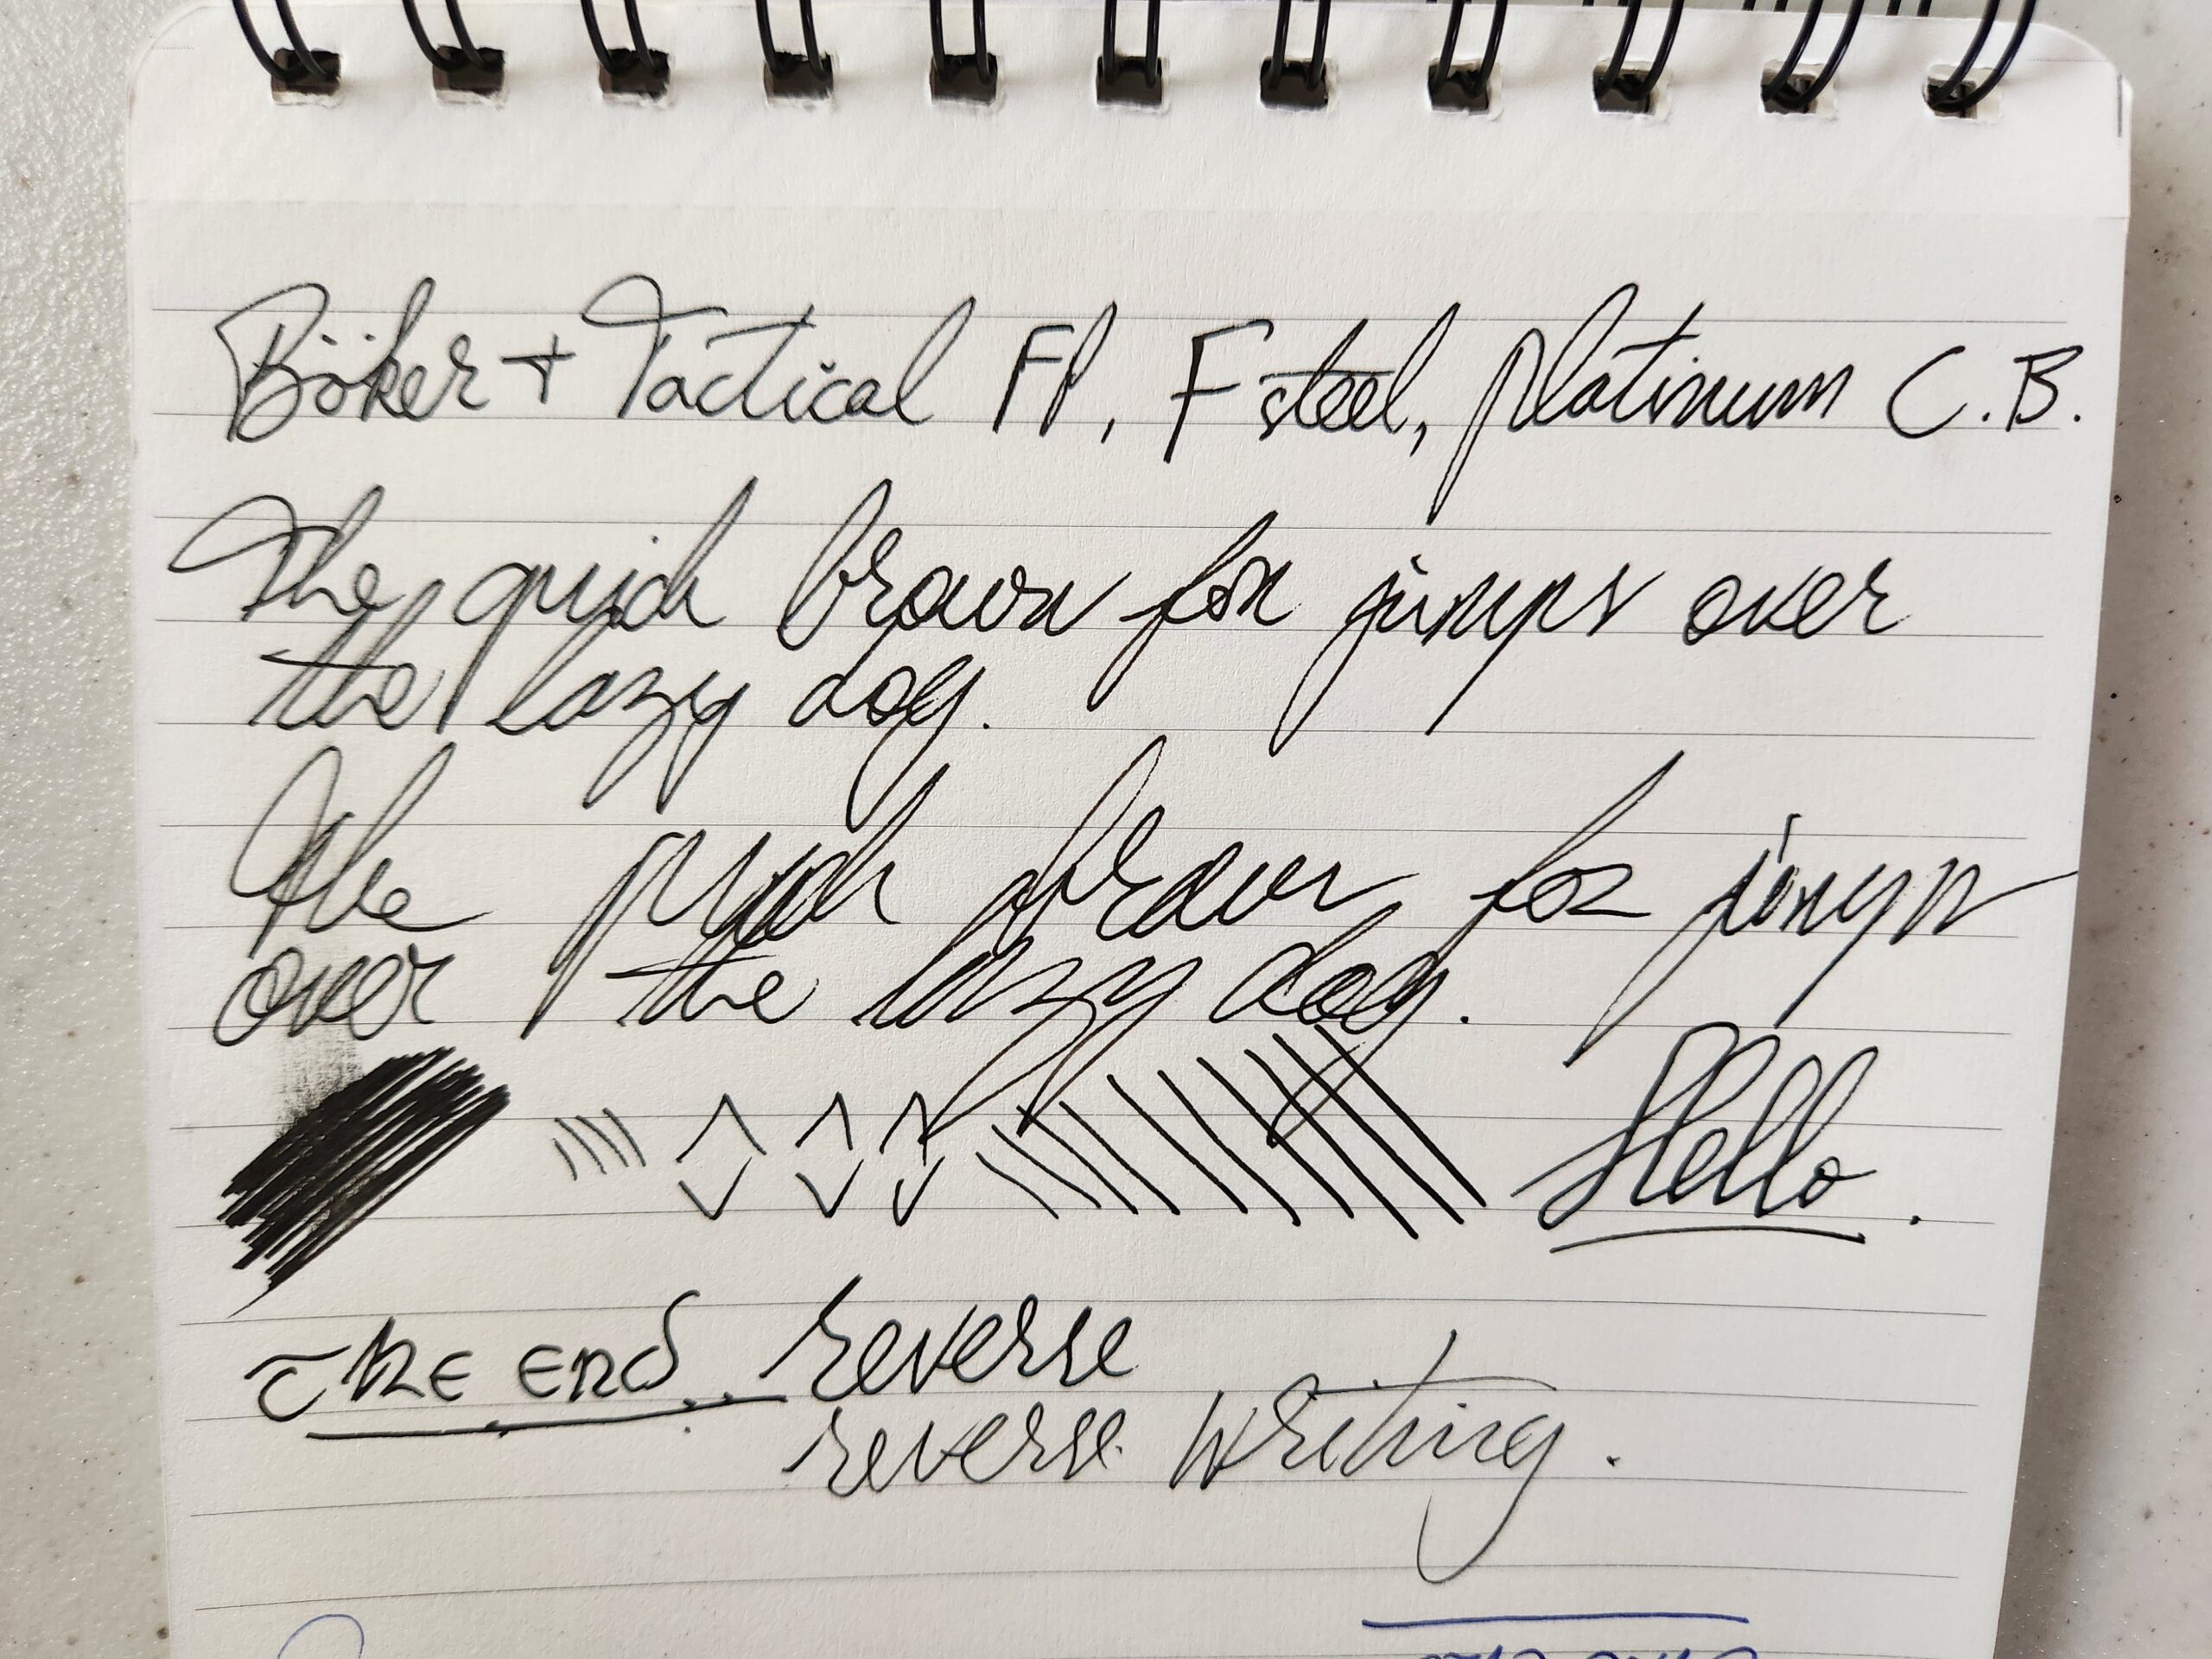 Böker + Tactical FP, F steel, Platinum C.B.
The quick brown fox jumps over
the lazy dog.
The quick brown fox jumps
over the lazy dog.
Hello.
The end.. reverse
reverse writing.